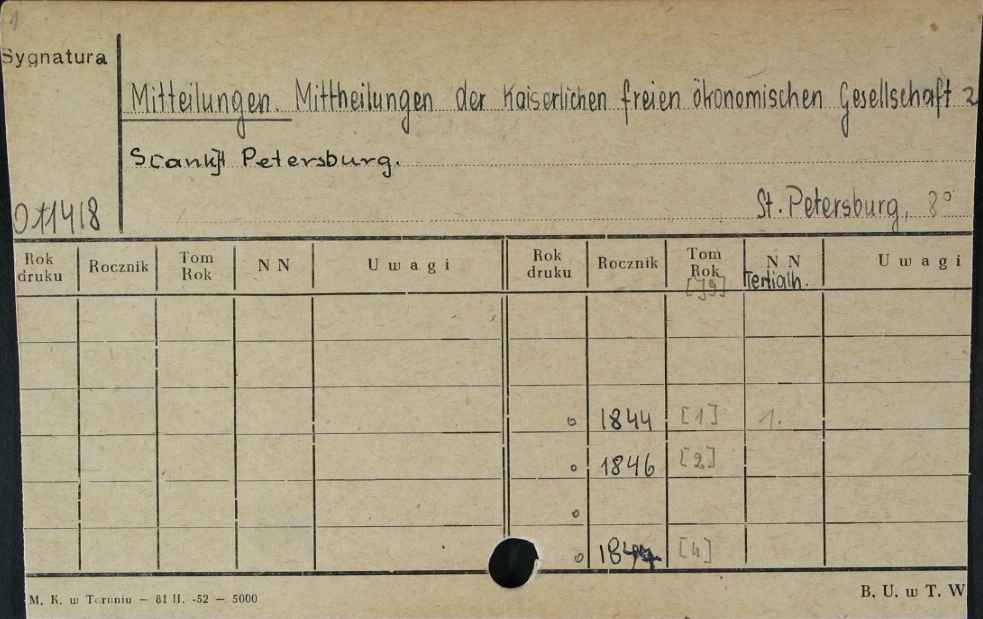 Sygnatura
Mitteilungen. Mittheilungen der Kaiserlichen freien ökonomischen Gesellschaft z
Scankt Petersburg.
011418
St. Petersburg, 8°
Rok druku Rocznik Tom Rok N N Uwagi Rok druku Rocznik Tom Rok N N Uwagi
[J9] Tertialh.
1844 [1] 1.
1846 [2]
1847 [4]
M. K. w Toruniu — 81 II. -52 — 5000
B. U. w T. W